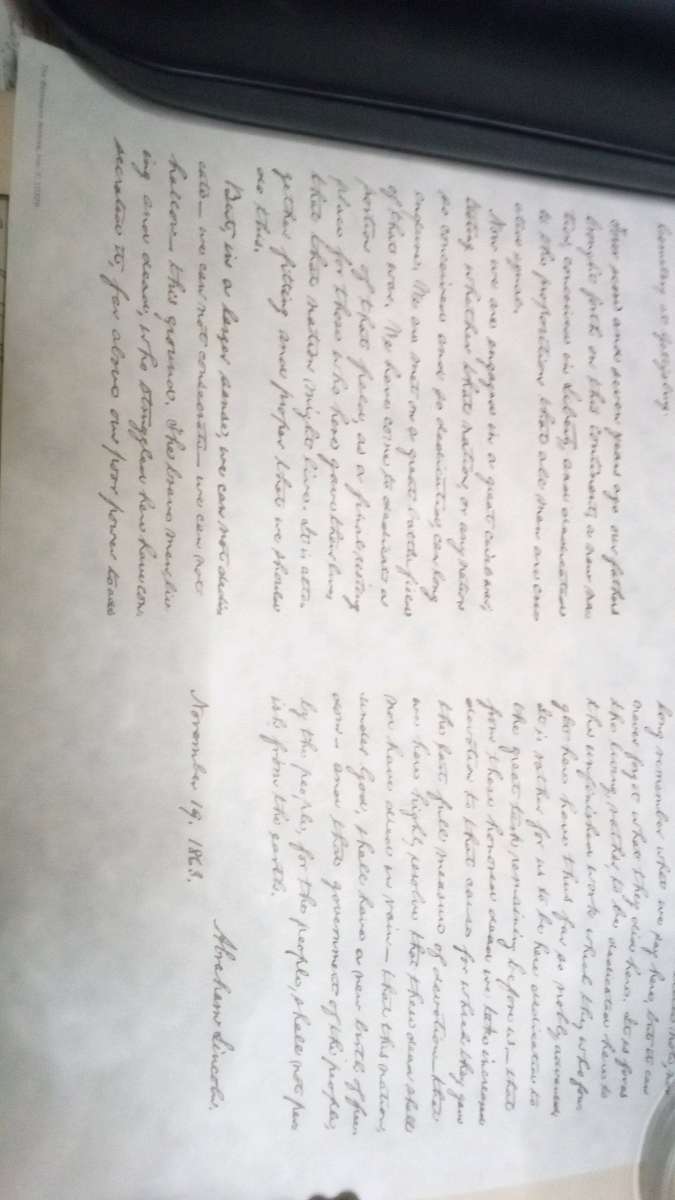 Four score and seven years ago our fathers
brought forth on this continent, a new na-
tion, conceived in Liberty, and dedicated
to the proposition that all men are cre-
ated equal.
Now we are engaged in a great civil war,
testing whether that nation, or any nation
so conceived and so dedicated, can long
endure. We are met on a great battle-field
of that war. We have come to dedicate a
portion of that field, as a final resting
place for those who here gave their lives
that that nation might live. It is alto-
gether fitting and proper that we should
do this.
But, in a larger sense, we can not dedi-
cate— we can not consecrate— we can not
hallow— this ground. The brave men, liv-
ing and dead, who struggled here have con-
secrated it, far above our poor power to add
long remember what we say here, but it can
never forget what they did here. It is for us
the living, rather, to be dedicated here to
the unfinished work which they who fou-
ght here have thus far so nobly advanced.
It is rather for us to be here dedicated to
the great task remaining before us— that
from these honored dead we take increased
devotion to that cause for which they gave
the last full measure of devotion— that
we here highly resolve that these dead shall
not have died in vain— that this nation,
under God, shall have a new birth of free-
dom— and that government of the people,
by the people, for the people, shall not per-
ish from the earth.
Abraham Lincoln.
November 19, 1863.